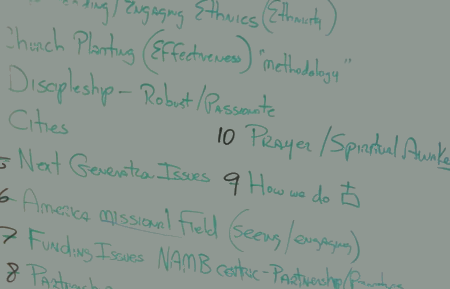 Engaging Ethnics (Ethnicity)
Church Planting (Effectiveness) "methodology"
Discipleship - Robust/Passionate
Cities
10 Prayer/Spiritual Awake
5 Next Generation Issues
9 How we do
6 America missional Field (Seeing/engaging)
7 Funding Issues NAMB centric-Partnership/
8